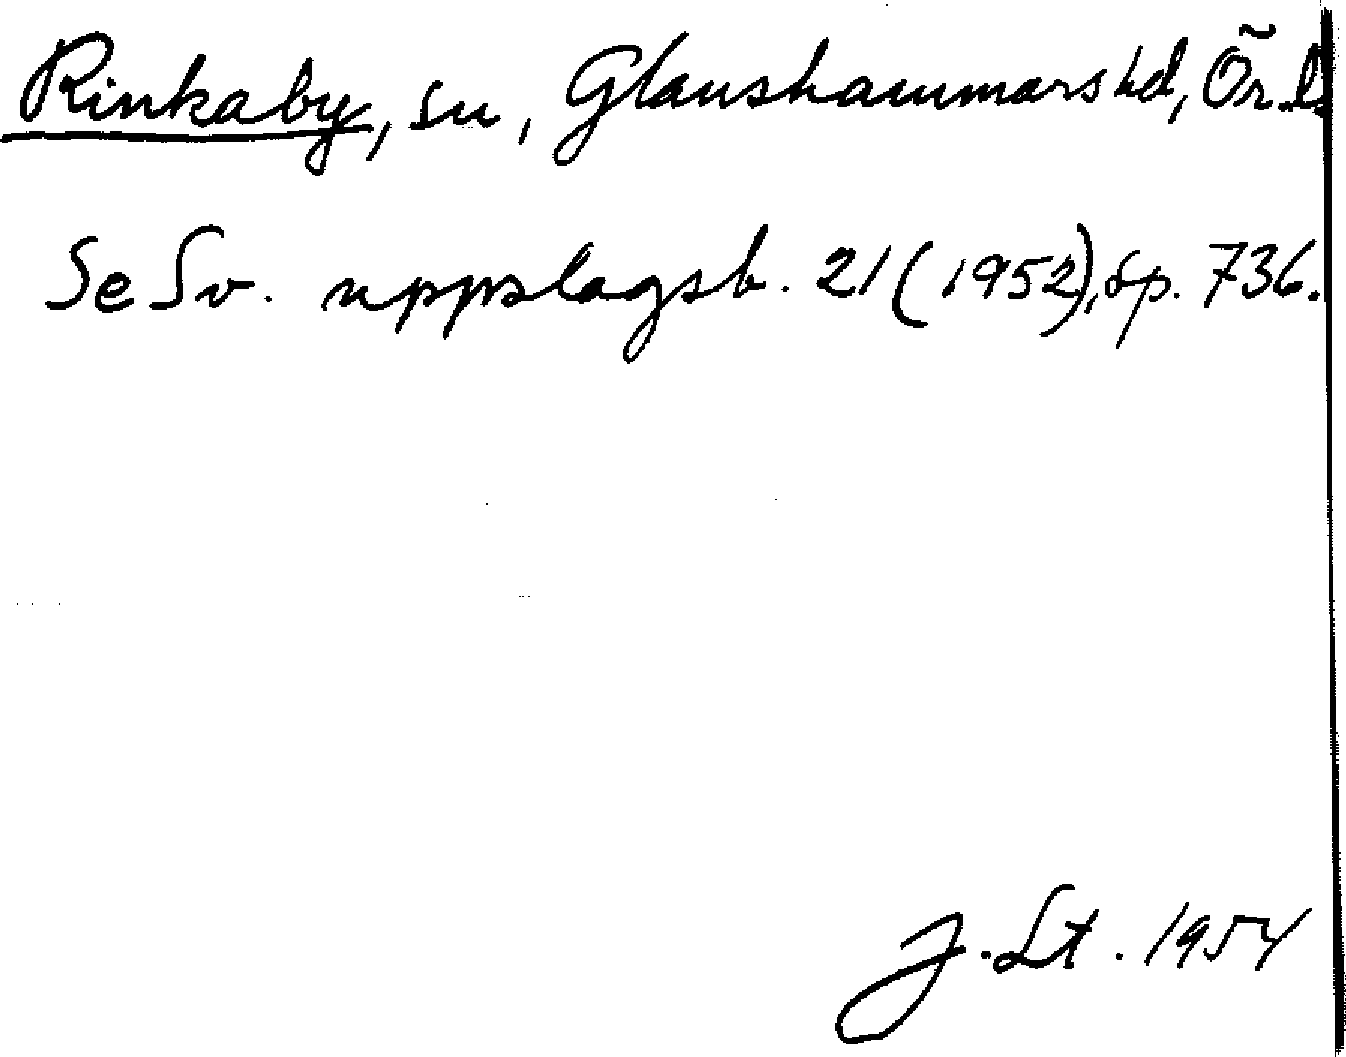 Rinkaby, sn, Glanshammars hd, Ör. l.
Se Sv. uppslagsb. 21 (1952), sp. 736.
J. Lt. 1954